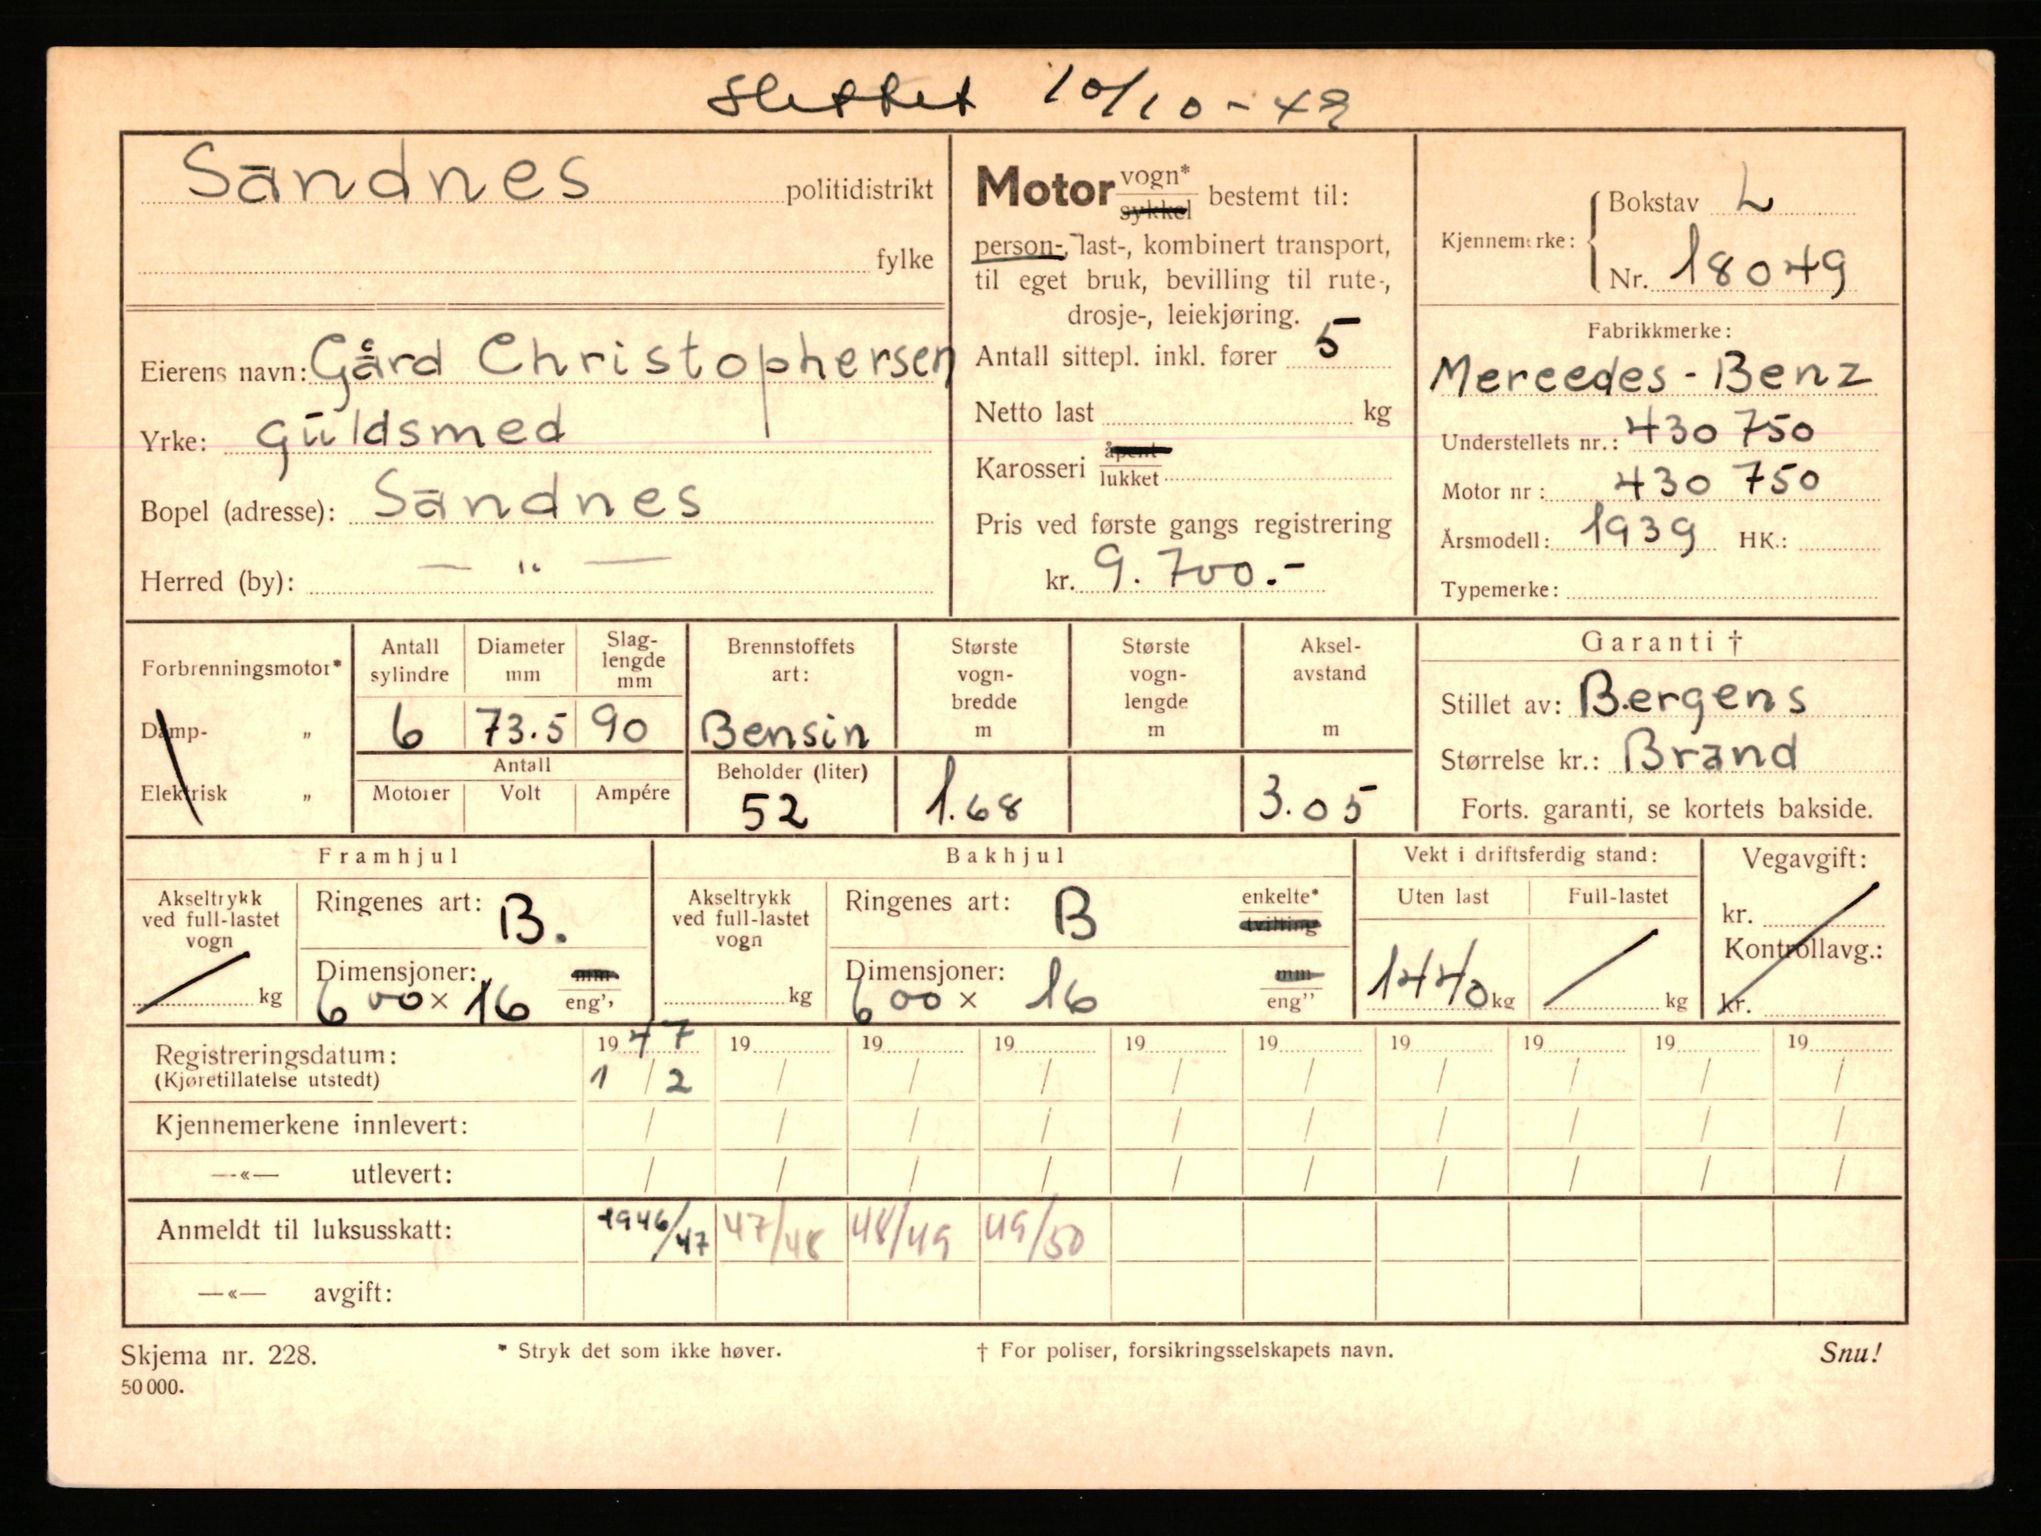 Slettet 10/10-49
Sandnes politidistrikt
fylke
Eierens navn: Gård Christophersen
Yrke: gullsmed
Bopel (adresse): Sandnes
Herred (by): — " —
Motor vogn* sykkel bestemt til:
person-, last-, kombinert transport,
til eget bruk, bevilling til rute-,
drosje-, leiekjøring.
Antall sittepl. inkl. fører 5
Netto last kg
Karosseri åpent lukket
Pris ved første gangs registrering
kr. 9.700.-
Kjennemerke: Bokstav L
Nr. 18049
Fabrikkmerke:
Mercedes-Benz
Understellets nr.: 430 750
Motor nr: 430 750
Årsmodell: 1939 HK.:
Typemerke:
Forbrenningsmotor*
Damp- „
Elektrisk „
Antall sylindre
6
Diameter mm
73.5
Slaglengde mm
90
Antall
Motorer Volt Ampére
Brennstoffets art:
Bensin
Beholder (liter)
52
Største vogn-bredde m
1.68
Største vogn-lengde m
Aksel-avstand m
3.05
Garanti †
Stillet av: Bergens
Størrelse kr.: Brand
Forts. garanti, se kortets bakside.
Framhjul
Akseltrykk ved full-lastet vogn
kg
Ringenes art: B.
Dimensjoner: mm
600 × 16 eng"
Bakhjul
Akseltrykk ved full-lastet vogn
kg
Ringenes art: B enkelte* tvilling
Dimensjoner: mm
600 × 16 eng"
Vekt i driftsferdig stand:
Uten last Full-lastet
1440 kg kg
Vegavgift:
kr.
Kontrollavg.:
kr.
Registreringsdatum: 1947 19 19 19 19 19 19 19 19 19
(Kjøretillatelse utstedt) 1/2 / / / / / / / / /
Kjennemerkene innlevert: / / / / / / / / / /
—«— utlevert: / / / / / / / / / /
Anmeldt til luksusskatt: 1946/47 47/48 48/49 49/50
—«— avgift:
Skjema nr. 228. * Stryk det som ikke høver. † For poliser, forsikringsselskapets navn. Snu!
50 000.